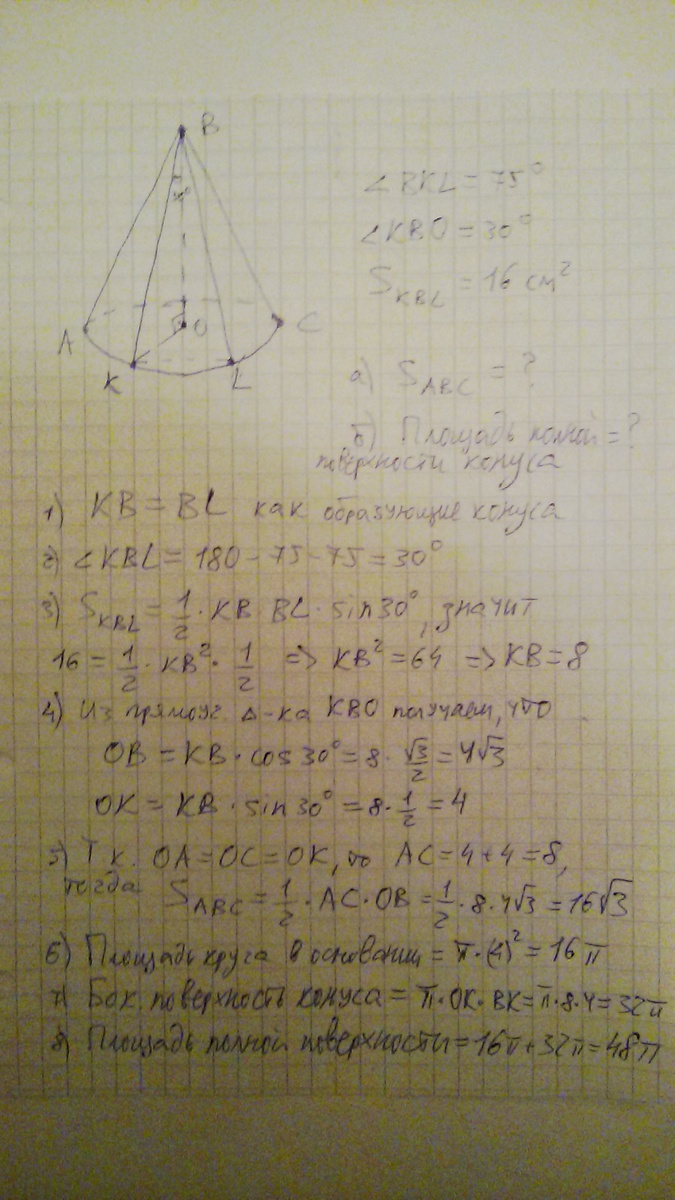 B
30°
A
O
C
K
L
∠BKL = 75°
∠KBO = 30°
S_KBL = 16 см²
а) S_ABC = ?
б) Площадь полной = ?
поверхности конуса
1) KB = BL как образующие конуса
2) ∠KBL = 180 - 75 - 75 = 30°
3) S_KBL = 1/2 · KB · BL · sin30°, значит
16 = 1/2 · KB² · 1/2 => KB² = 64 => KB = 8
4) Из прямоуг. Δ-ка KBO получаем, что
OB = KB · cos30° = 8 · √3/2 = 4√3
OK = KB · sin30° = 8 · 1/2 = 4
5) Т.к. OA = OC = OK, то AC = 4 + 4 = 8,
тогда S_ABC = 1/2 · AC · OB = 1/2 · 8 · 4√3 = 16√3
6) Площадь круга в основании = π · (4)² = 16π
7) Бок. поверхность конуса = π · OK · BK = π · 8 · 4 = 32π
8) Площадь полной поверхности = 16π + 32π = 48π